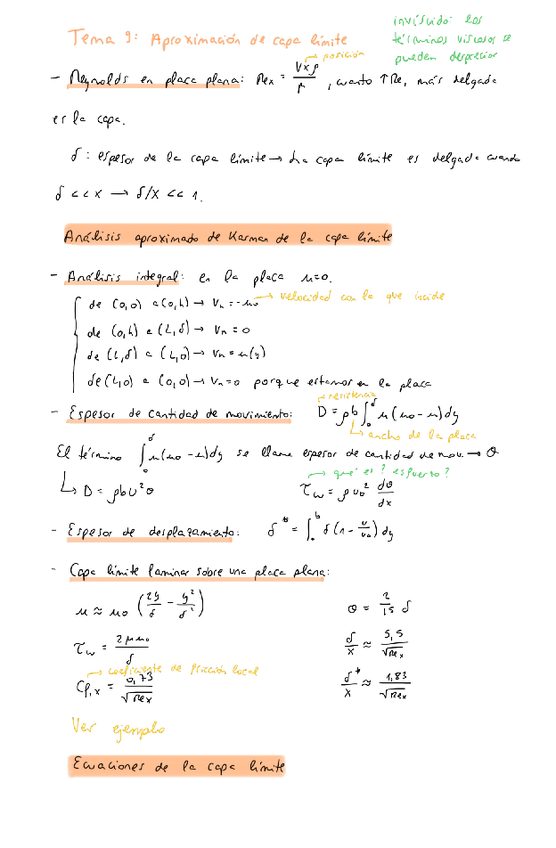 Tema 9: Aproximación de capa límite
inviscido: los
términos viscosos se
pueden despreciar
→ posición
- Reynolds en placa plana: Rex = Vxρ/μ, cuanto ↑Re, más delgada
es la capa.
δ: espesor de la capa límite → La capa límite es delgada cuando
δ << x → δ/x << 1.
Análisis aproximado de Karman de la capa límite
- Análisis integral: en la placa u=0.
de (0,0) a (0,h) → Vn = -u0 → velocidad con la que incide
de (0,h) a (L,δ) → Vn = 0
de (L,δ) a (L,0) → Vn = u(y)
de (L,0) a (0,0) → Vn=0 porque estamos en la placa
→ resistencia
- Espesor de cantidad de movimiento: D = ρb∫₀^δ u(u0-u)dy
→ ancho de la placa
El término ∫₀^δ u(u0-u)dy se llama espesor de cantidad de mov. → θ
→ qué es? esfuerzo?
↳ D = ρbU²θ τw = ρu0² dθ/dx
- Espesor de desplazamiento: δ* = ∫₀^b δ(1-u/u0)dy
- Capa límite laminar sobre una placa plana:
u ≈ u0 (2y/δ - y²/δ²) θ = 2/15 δ
τw = 2μu0/δ δ/x ≈ 5,5/√Rex
→ coeficiente de fricción local
Cf,x = 0,73/√Rex δ*/x ≈ 1,83/√Rex
Ver ejemplo
Ecuaciones de la capa límite